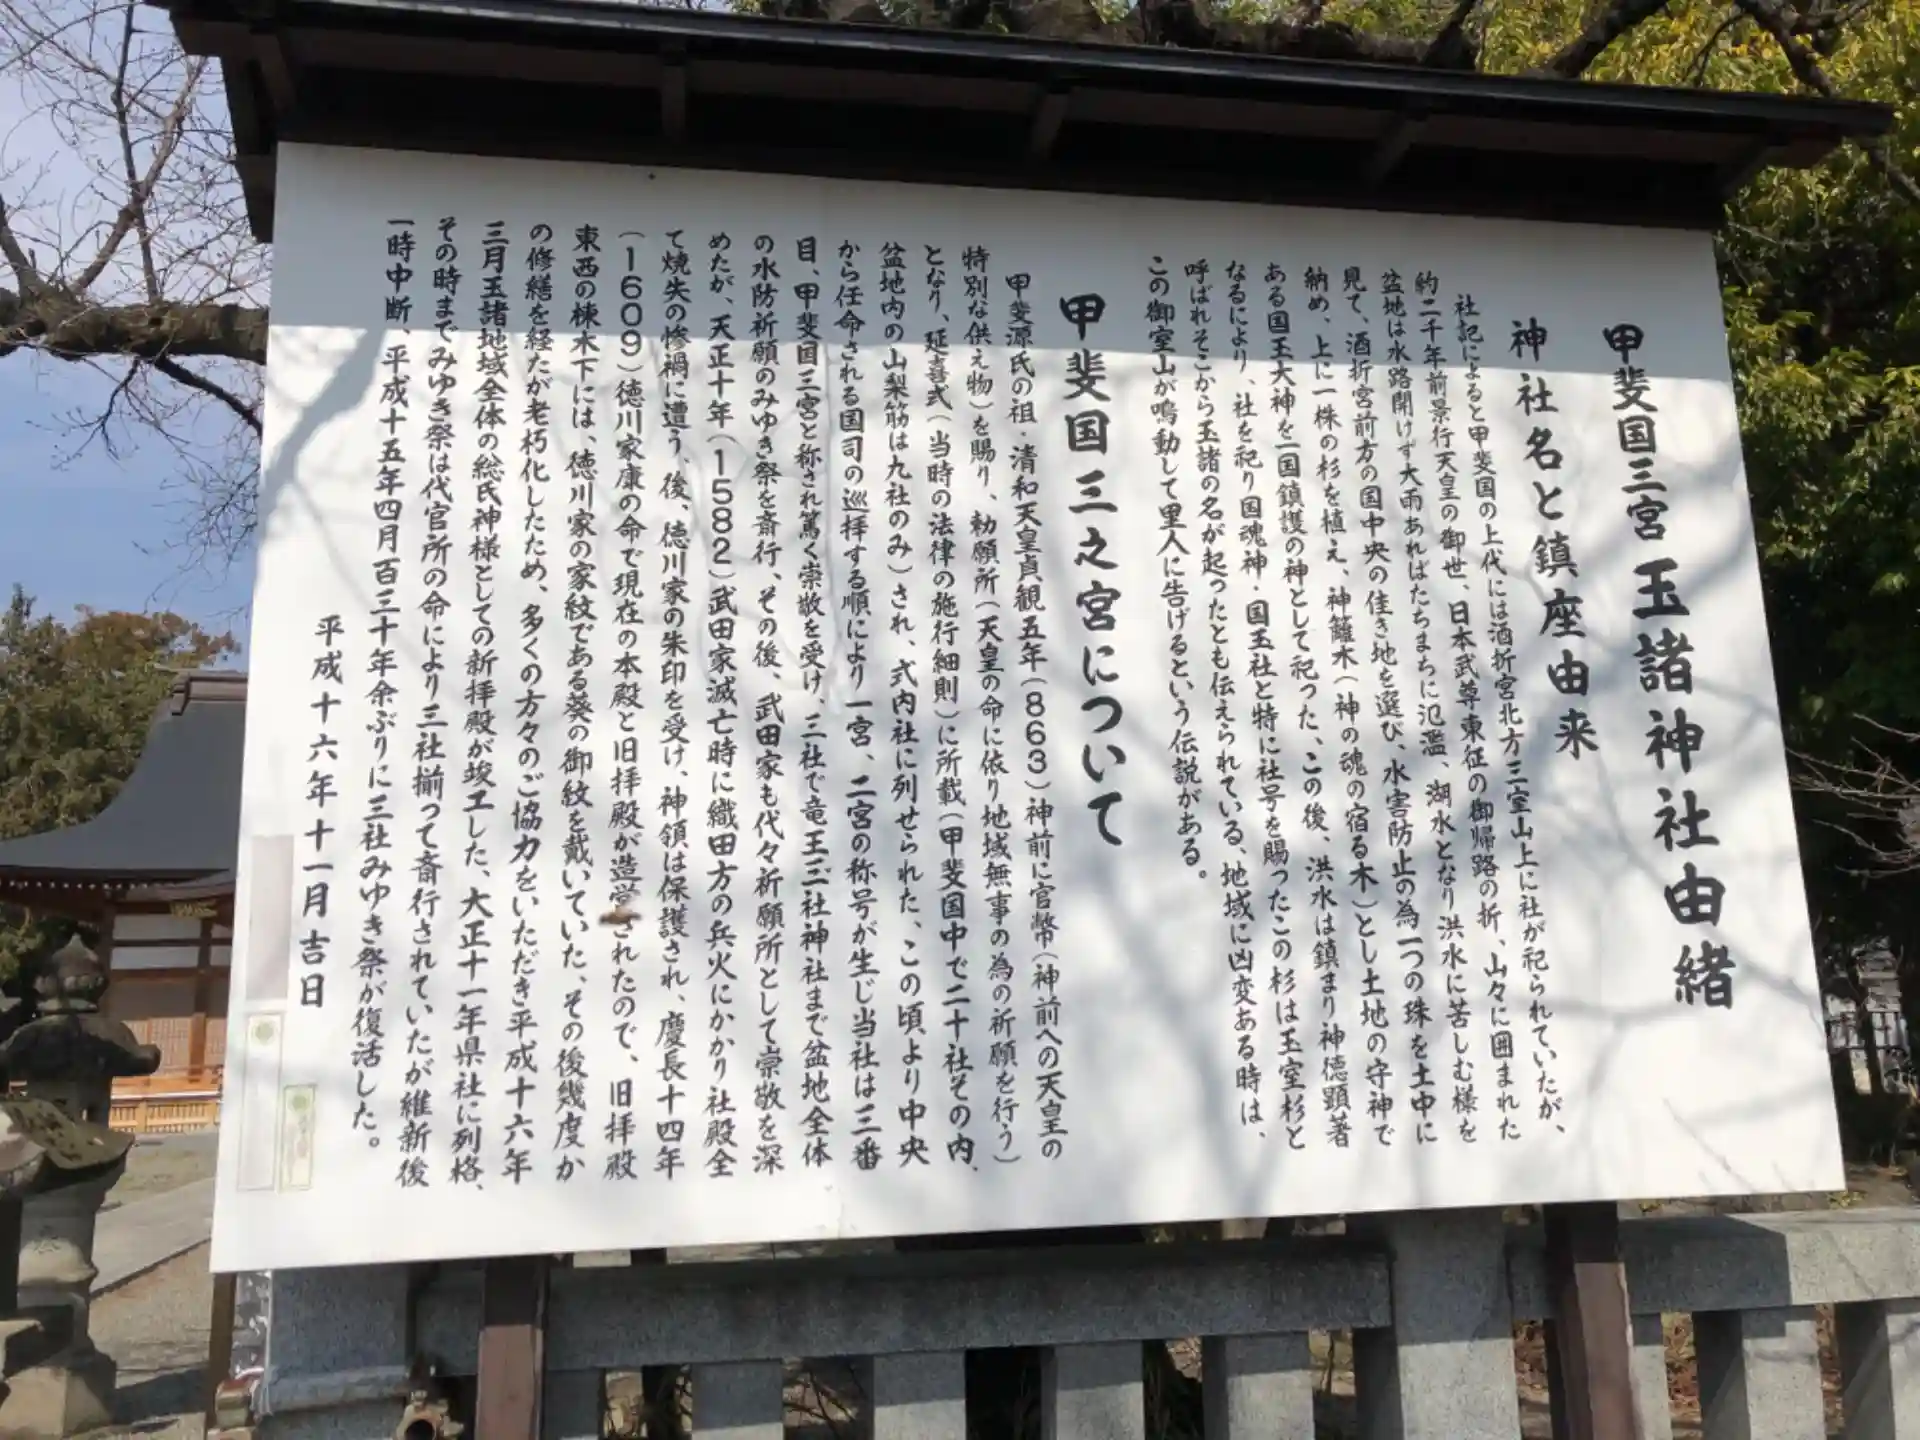 甲斐国三宮 玉諸神社由緒
神社名と鎮座由来
社記によると甲斐国の上代には酒折宮北方三室山上に社が祀られていたが、
約二千年前景行天皇の御世、日本武尊東征の御帰路の折、山々に囲まれた
盆地は水路開けず大雨あればたちまちに氾濫、湖水となり洪水に苦しむ様を
見て、酒折宮前方の国中央の佳き地を選び、水害防止の為一つの珠を土中に
納め、上に一株の杉を植え、神籬木(神の魂の宿る木)とし土地の守神で
ある国玉大神を一国鎮護の神として祀った、この後、洪水は鎮まり神徳顕著
なるにより、社を祀り国魂神・国玉社と特に社号を賜ったこの杉は玉室杉と
呼ばれそこから玉諸の名が起ったとも伝えられている、地域に凶変ある時は、
この御室山が鳴動して里人に告げるという伝説がある。
甲斐国三之宮について
甲斐源氏の祖・清和天皇貞観五年(863)神前に官幣(神前への天皇の
特別な供え物)を賜り、勅願所(天皇の命に依り地域無事の為の祈願を行う)
となり、延喜式(当時の法律の施行細則)に所載(甲斐国中で二十社その内、
盆地内の山梨筋は九社のみ)され、式内社に列せられた、この頃、より中央
から任命される国司の巡拝する順により一宮、二宮の称号が生じ当社は三番
目、甲斐国三宮と称され篤く崇敬を受け、三社で竜王三社神社まで盆地全体
の水防祈願のみゆき祭を斎行、その後、武田家も代々祈願所として崇敬を深
めたが、天正十年(1582)武田家滅亡時に織田方の兵火にかかり社殿全
て焼失の惨禍に遭う、後、徳川家の朱印を受け、神領は保護され、慶長十四年
(1609)徳川家康の命で現在の本殿と旧拝殿が造営されたので、旧拝殿
東西の棟木下には、徳川家の家紋である葵の御紋を戴いていた、その後幾度か
の修繕を経たが老朽化したため、多くの方々のご協力をいただき平成十六年
三月玉諸地域全体の総氏神様としての新拝殿が竣工した、大正十一年県社に列格、
その時までみゆき祭は代官所の命により三社揃って斎行されていたが維新後
一時中断、平成十五年四月百三十年余ぶりに三社みゆき祭が復活した。
平成十六年十一月吉日